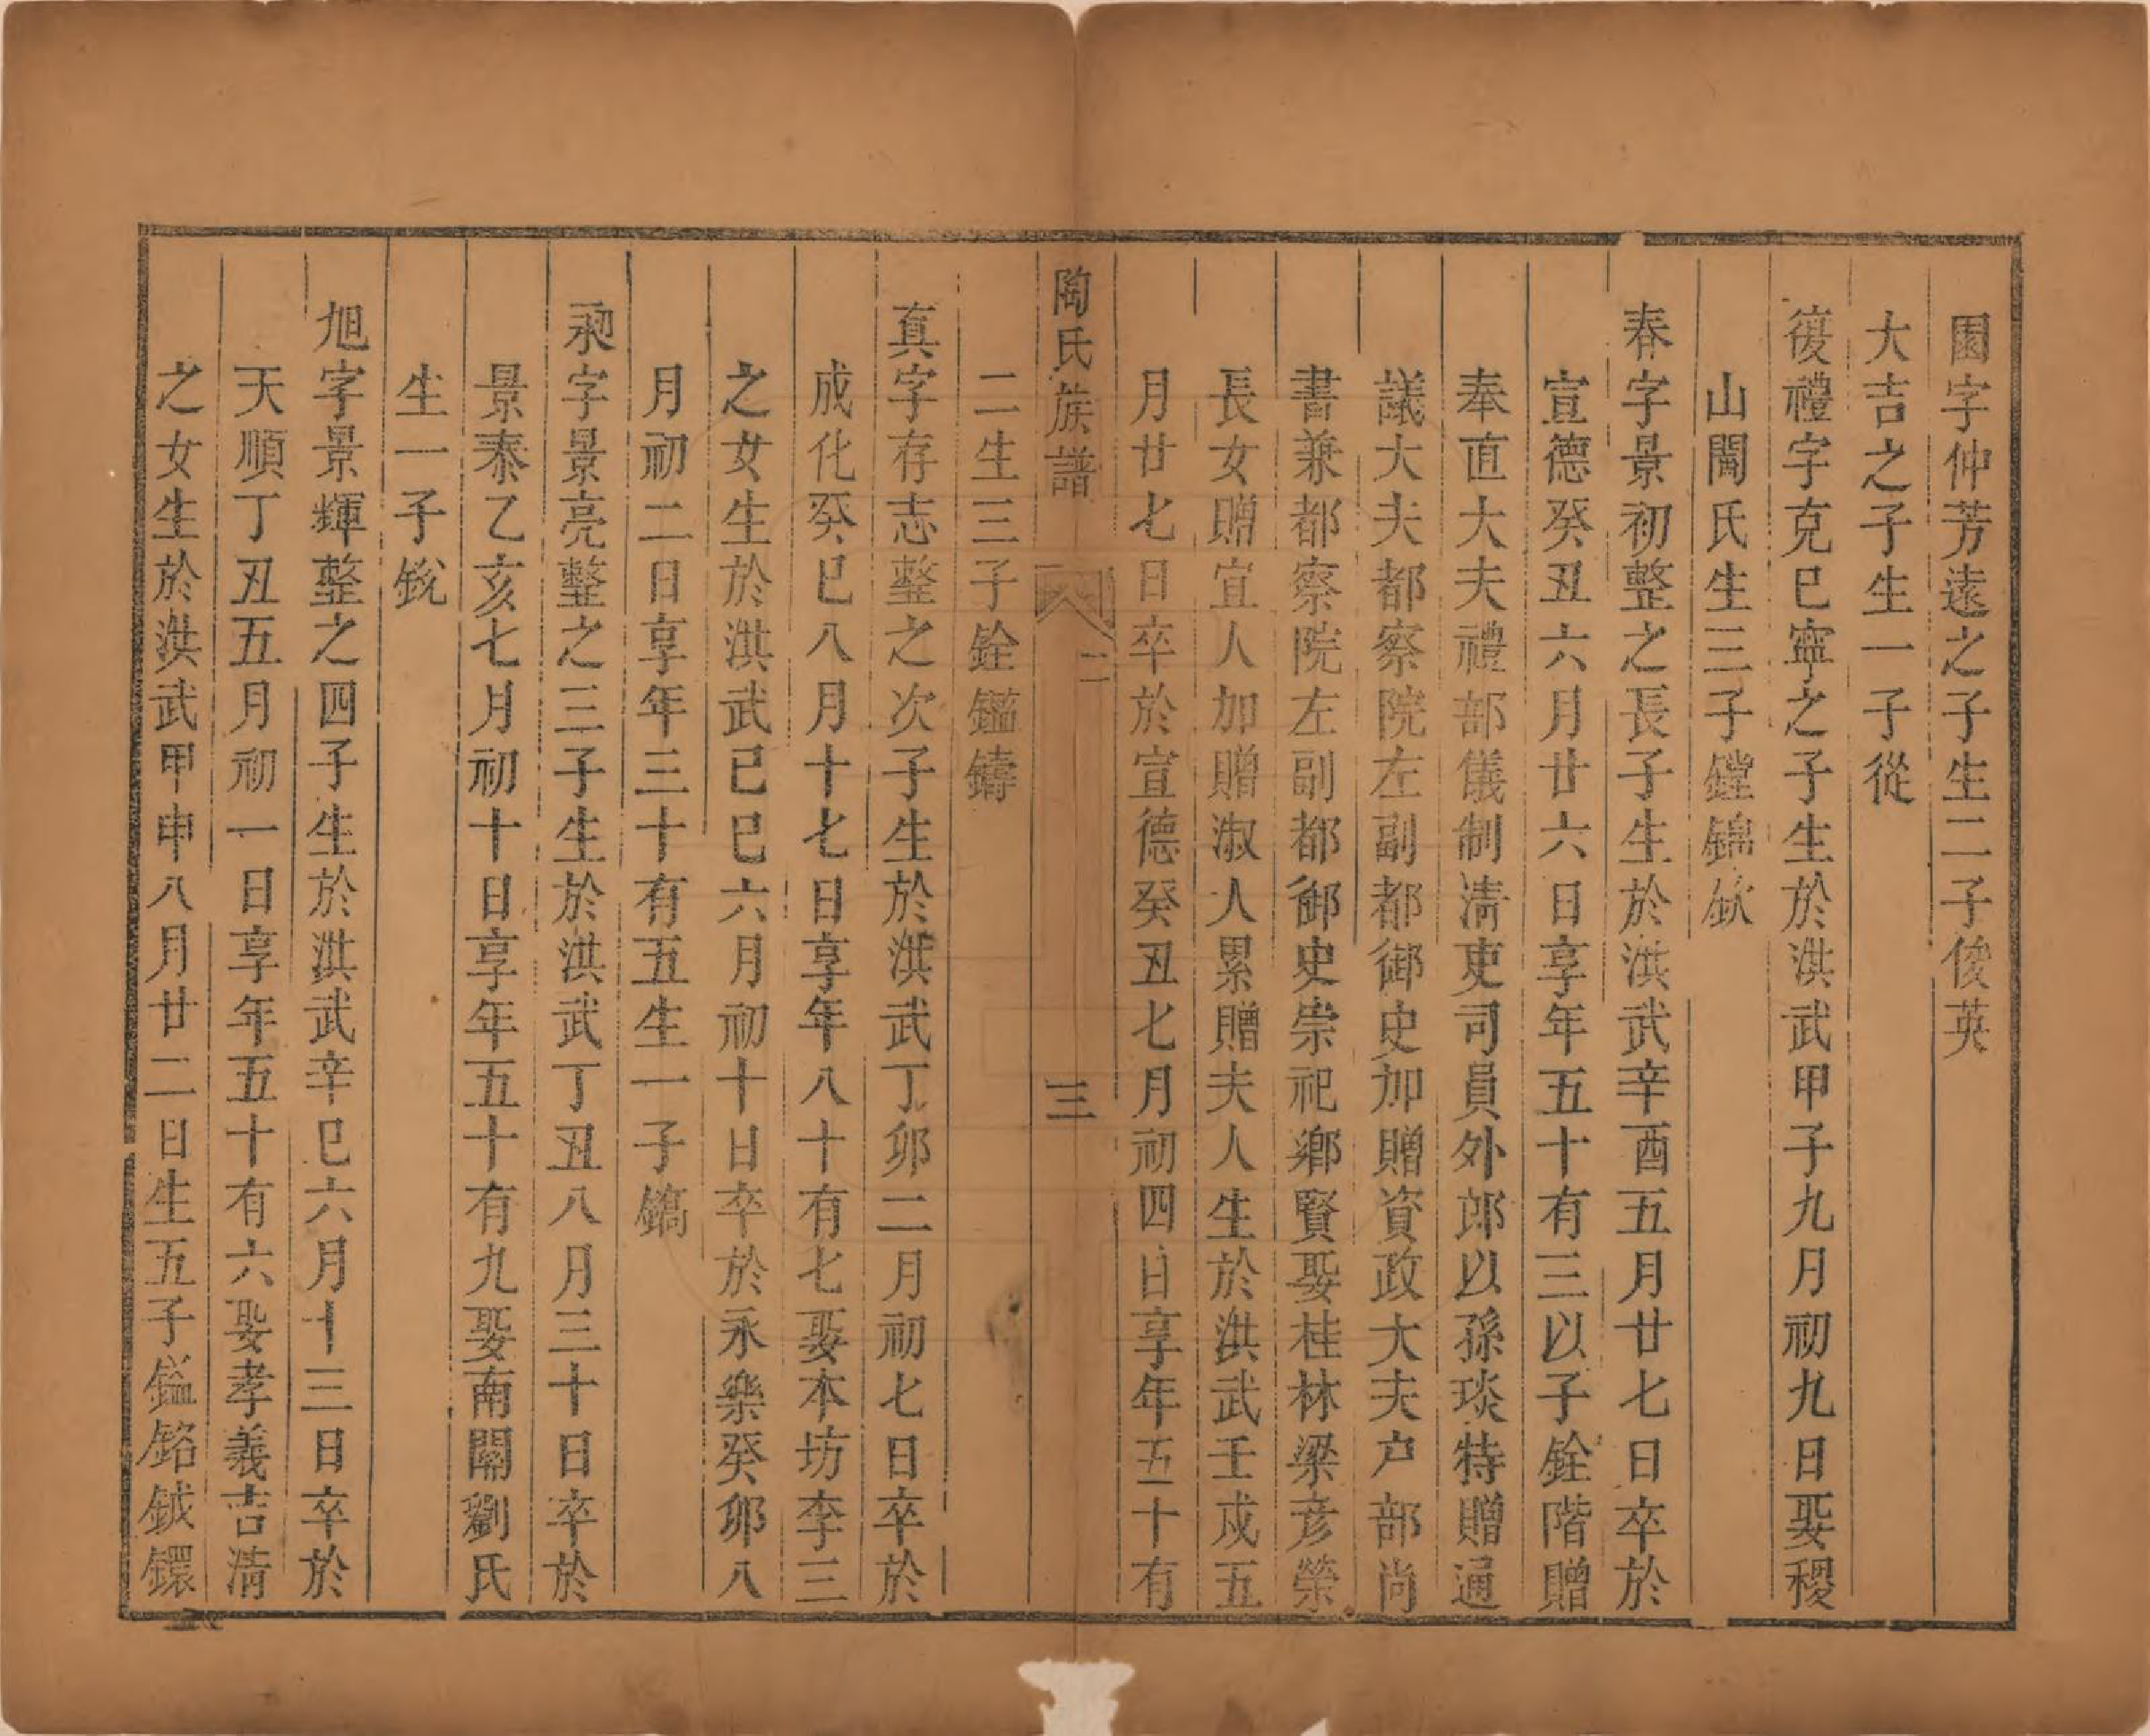 園字仲芳遠之子生二子俊英
大吉之子生一子從
復禮字克巳寧之子生於洪武甲子九月初九日娶稷
山閻氏生三子鏜錦欽
春字景初整之長子生於洪武辛酉五月廿七日卒於
宣德癸丑六月廿六日享年五十有三以子銓階贈
奉直大夫禮部儀制清吏司員外郎以孫琰特贈通
議大夫都察院左副都御史加贈資政大夫户部尚
書兼都察院左副都御史崇祀鄉賢娶桂林梁彦榮
長女贈宜人加贈淑人累贈夫人生於洪武壬戌五
月廿七日卒於宣德癸丑七月初四日享年五十有
陶氏族譜 二 三
二生三子銓鑑鑄
真字存志整之次子生於洪武丁卯二月初七日卒於
成化癸巳八月十七日享年八十有七娶本坊李三
之女生於洪武己巳六月初十日卒於永樂癸卯八
月初二日享年三十有五生一子鎬
字景亮整之三子生於洪武丁丑八月三十日卒於
景泰乙亥七月初十日享年五十有九娶南關劉氏
生一子銳
旭字景輝整之四子生於洪武辛巳六月十三日卒於
天順丁丑五月初一日享年五十有六娶孝義吉清
之女生於洪武甲申八月廿二日生五子鎰銘鉞鐶